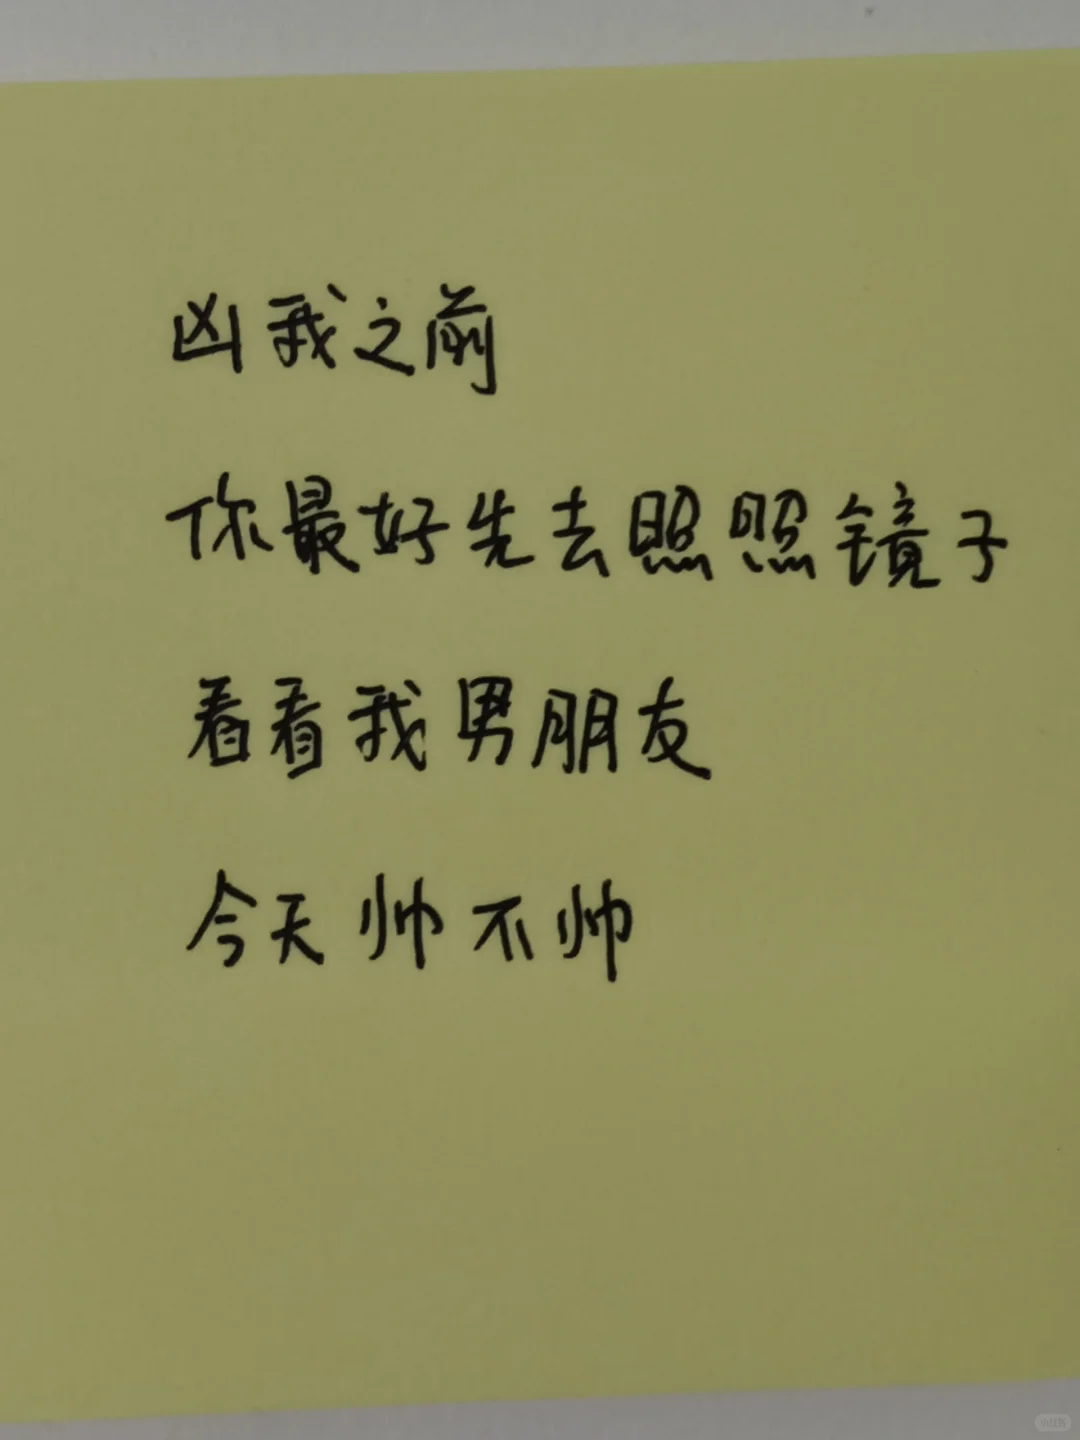 凶我之前
你最好先去照照镜子
看看我男朋友
今天帅不帅